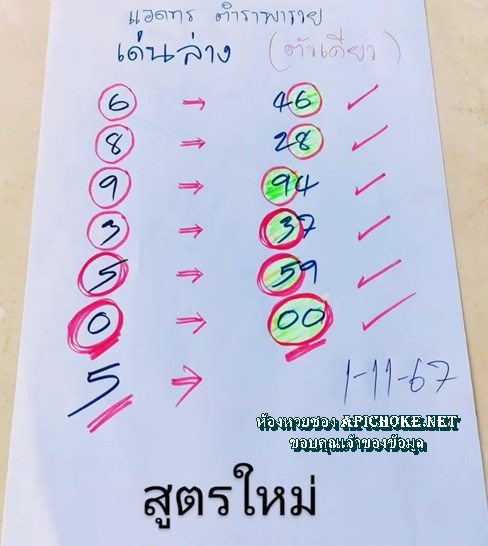 แอดทร ตำราพารวย
เด่นล่าง (ตัวเดียว)
6 → 46 ✓
8 → 28 ✓
9 → 94 ✓
3 → 37 ✓
5 → 59 ✓
0 → 00 ✓
5 →
1-11-67
ห้องหวยซอง APICHOKE.NET
ขอบคุณเจ้าของข้อมูล
สูตรใหม่